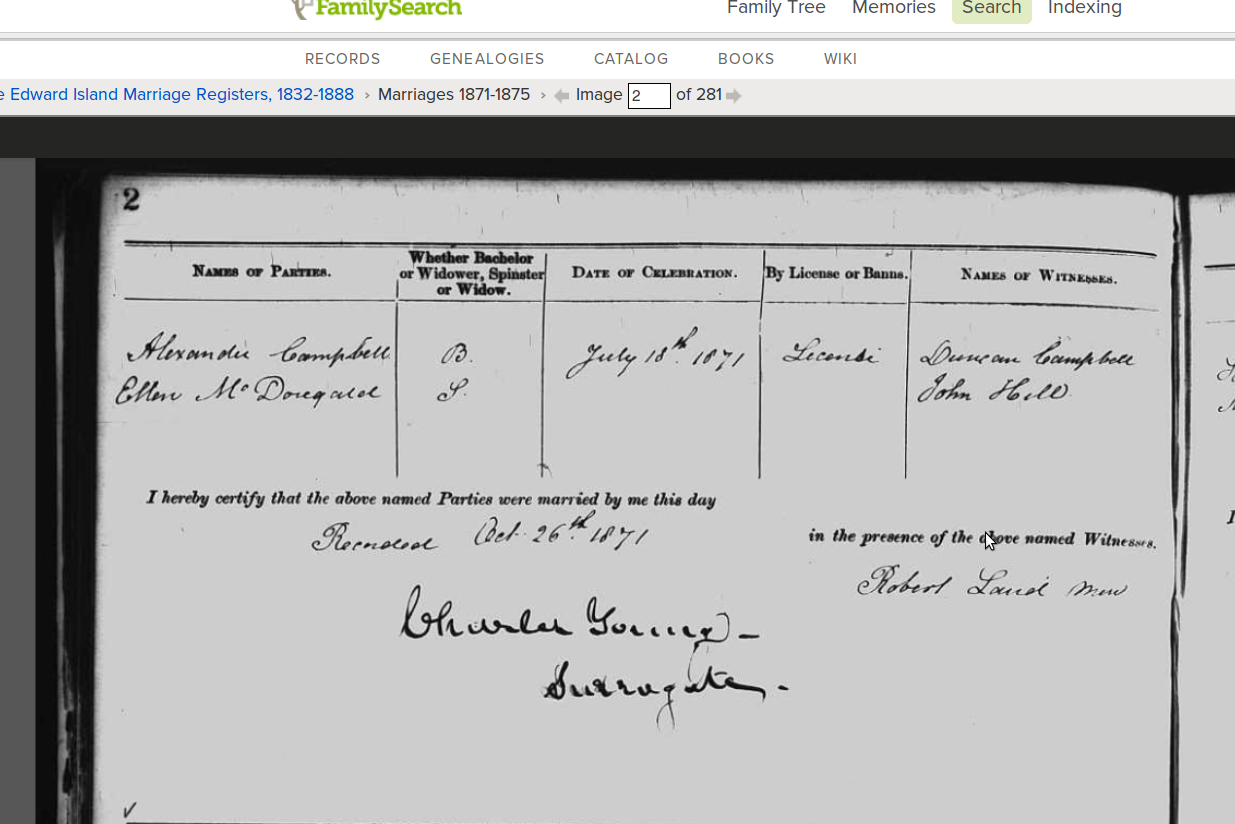 FamilySearch
Family Tree Memories Search Indexing
RECORDS GENEALOGIES CATALOG BOOKS WIKI
e Edward Island Marriage Registers, 1832-1888 › Marriages 1871-1875 › Image 2 of 281
2
NAMES OF PARTIES. Whether Bachelor or Widower, Spinster or Widow. DATE OF CELEBRATION. By License or Banns. NAMES OF WITNESSES.
Alexander Campbell B. July 18th. 1871 License Duncan Campbell
Ellen Mc Dougald S. John Hill
I hereby certify that the above named Parties were married by me this day
Recorded Oct. 26th 1871 in the presence of the above named Witnesses.
Robert Laird
Charles Young -
Surrogate. -